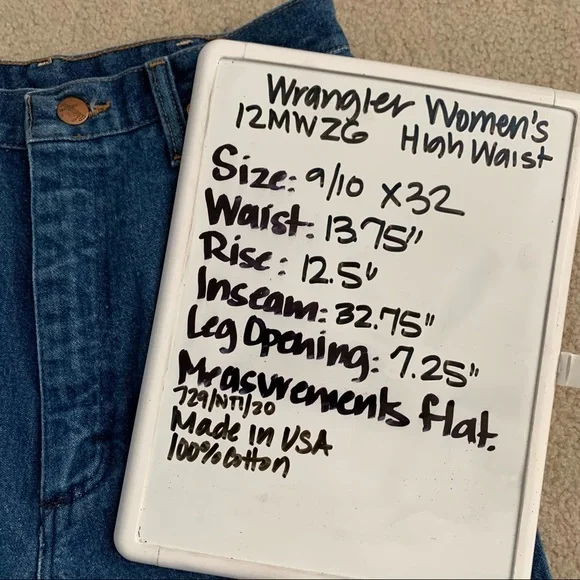 Wrangler Women's
12MWZG High Waist
Size: 9/10 x32
Waist: 13.75"
Rise: 12.5"
Inseam: 32.75"
Leg Opening: 7.25"
Measurements flat.
729/NT1/20
Made in USA
100% Cotton